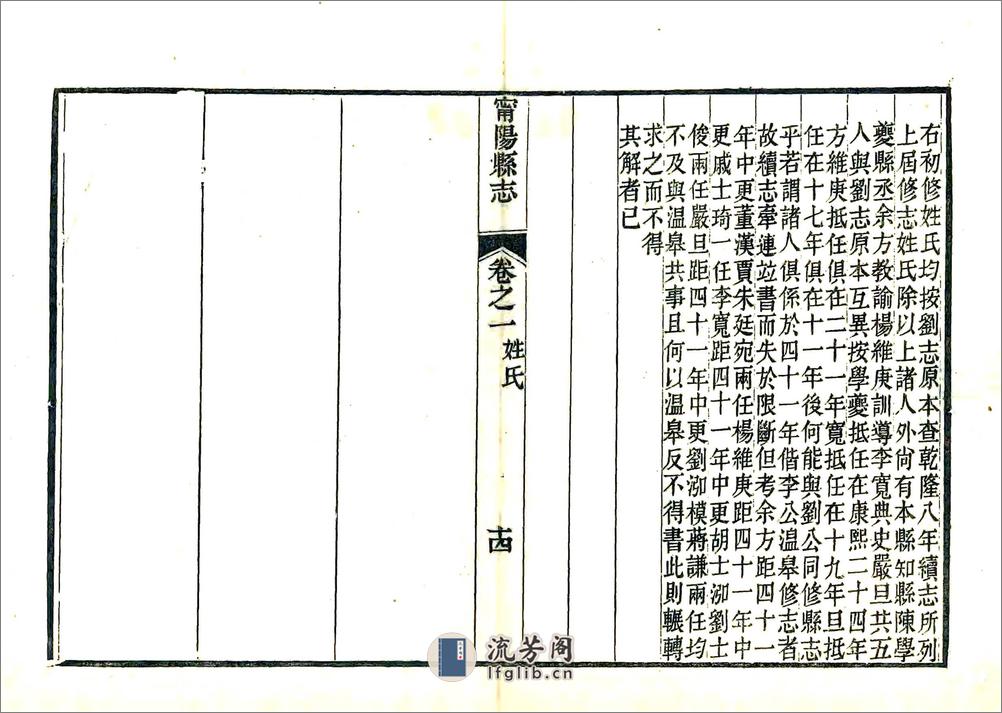 右初修姓氏均按劉志原本查乾隆八年續志所列
上屆修志姓氏除以上諸人外尙有本縣知縣陳學
夔縣丞余方教諭楊維庚訓導李寬典史嚴旦共五
人與劉志原本互異按學夔抵任在康熙二十四年
方維庚抵任俱在二十一年寬抵任在十九年旦抵
任在十七年俱在十一年後何能與劉公同修縣志
乎若謂諸人俱係於四十一年偕李公溫皋修志者
故續志牽連竝書而失於限斷但考余方距四十一
年中更董漢賈朱廷宛兩任楊維庚距四十一年中
更戚士琦一任李寬距四十一年中更胡士泖劉士
俊兩任嚴旦距四十一年中更劉泖模蔣謙兩任均
不及與溫皋共事且何以溫皋反不得書此則輾轉
求之而不得
其解者已
甯陽縣志
卷之一
姓氏
十四
流芳阁
lfglib.cn